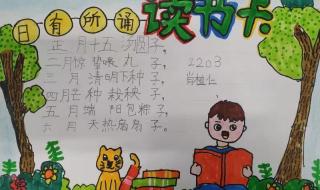 日有所诵
读书卡
正月十五汤圆子，
二月惊蛰嗾丸子，
三月清明下种子，
四月芒种栽秧子，
五月端阳包粽子，
六月天热扇扇子，
2203
肖植仁